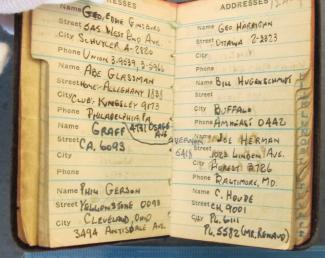 ADDRESSES
Name GEO, EDDIE GINSBURG
Street 545 WEST END AVE.
City SCHUYLER 4-2820
Phone UNION 3-9539, 3-5966
Name ABE GLASSMAN
Street HOME-ALLEGHANY 1331
City CLUB-KINGSLEY 9173
Phone PHILADELPHIA PA.
Name GRAFF 4731 OSAGE AVE
Street CA. 6093
City
Phone
Name PHIL GERSON
Street YELLOWSTONE 0093
City CLEVELAND, OHIO
3494 ANTISDALE AVE.
ADDRESSES
Name GEO HARRIGAN
Street OTTAWA 2-2823
City
Phone
Name BILL HUGENSCHMIDT
Street
City BUFFALO
Phone AMHERST 0442
Name JOE HERMAN
Street 1023 LINDEN AVE.
City FOREST 2726
Phone BALTIMORE, MD.
Name C. HOUDE
Street CH. 9001
City PL. 6111
PL. 5582 (MR. RENAUD)